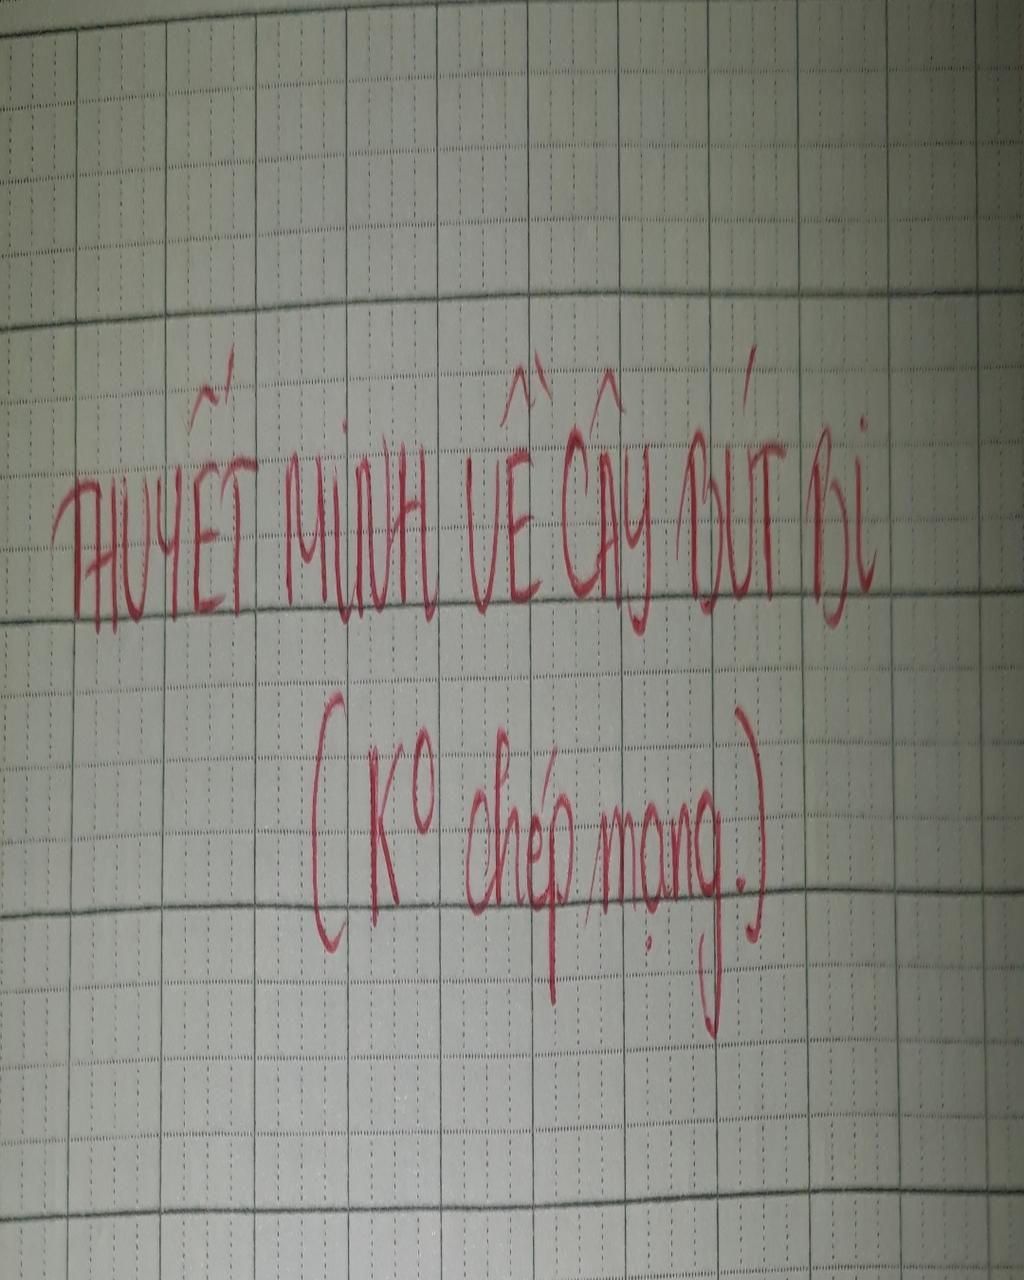 THUYẾT MiNH VỀ CÂY BÚT Bi
(K⁰ chép mạng.)